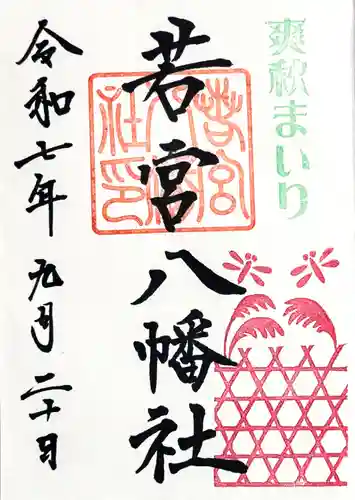 爽秋まいり
若宮八幡社
令和七年 九月二十日